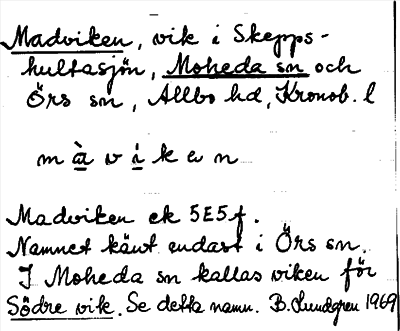 Madviken, vik i Skepps-
hultasjön, Moheda sn och
Örs sn, Allbo hd, Kronob. l
m à v i k e n
Madviken ek 5E5f.
Namnet känt endast i Örs sn.
I Moheda sn kallas viken för
Södre vik. Se detta namn. B. Lundgren 1969